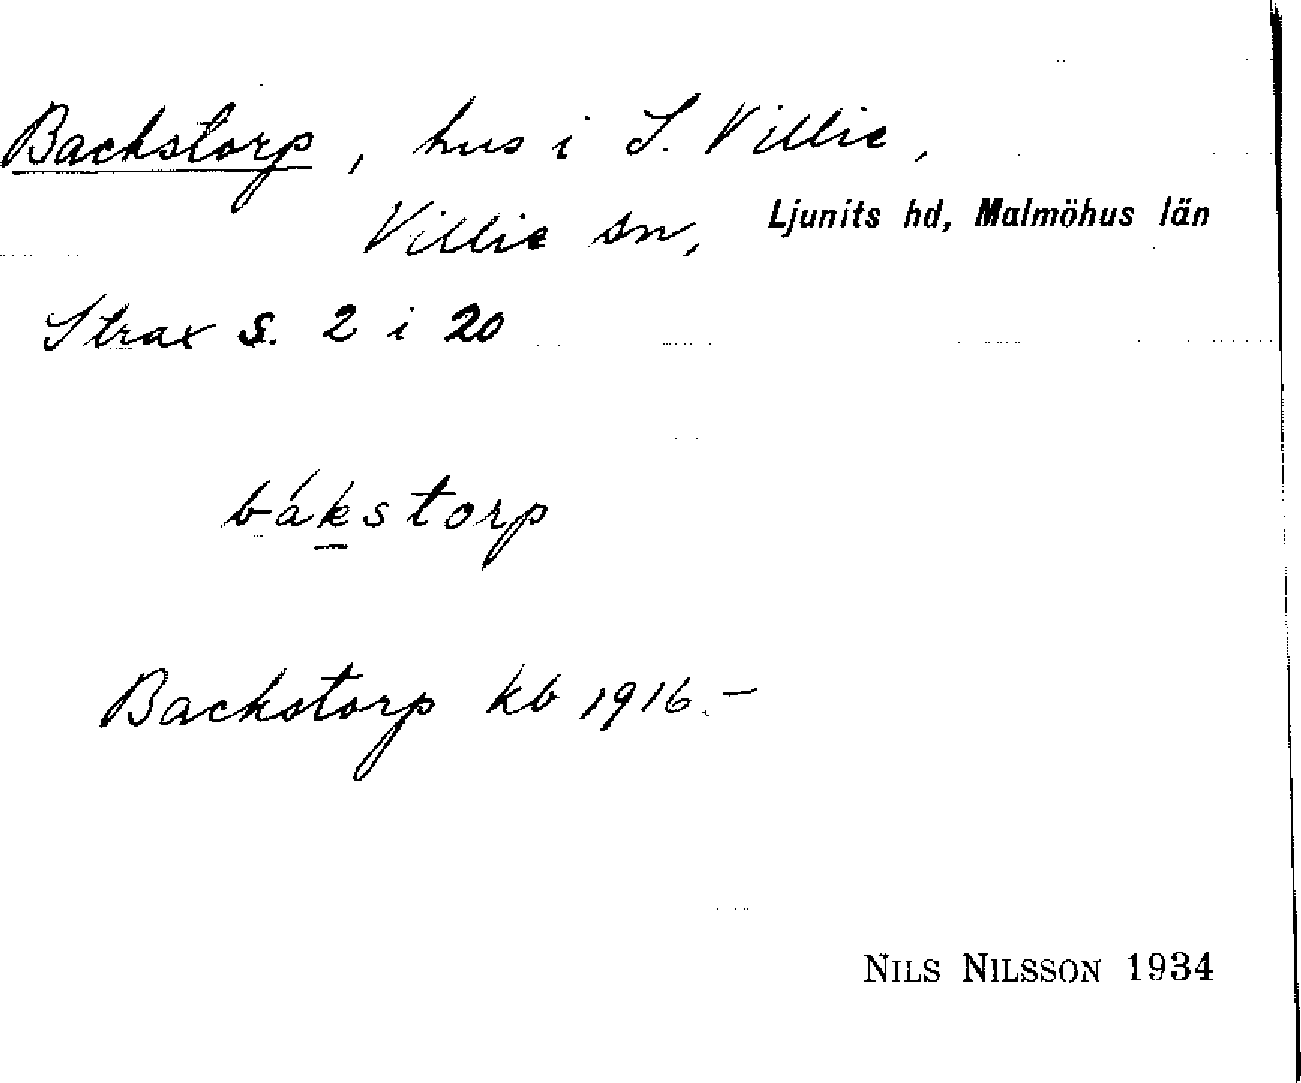 Backstorp, hus i S. Villie,
Villie sn, Ljunits hd, Malmöhus län
Strax S. 2 i 20
bákstorp
Backstorp kb 1916.–
NILS NILSSON 1934